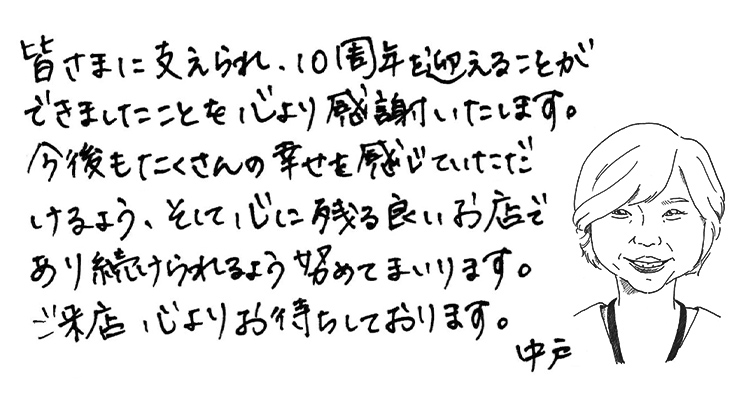 皆さまに支えられ、10周年を迎えることが
できましたことを心より感謝いたします。
今後もたくさんの幸せを感じていただ
けるよう、そして心に残る良いお店で
あり続けられるよう努めてまいります。
ご来店、心よりお待ちしております。
中戸